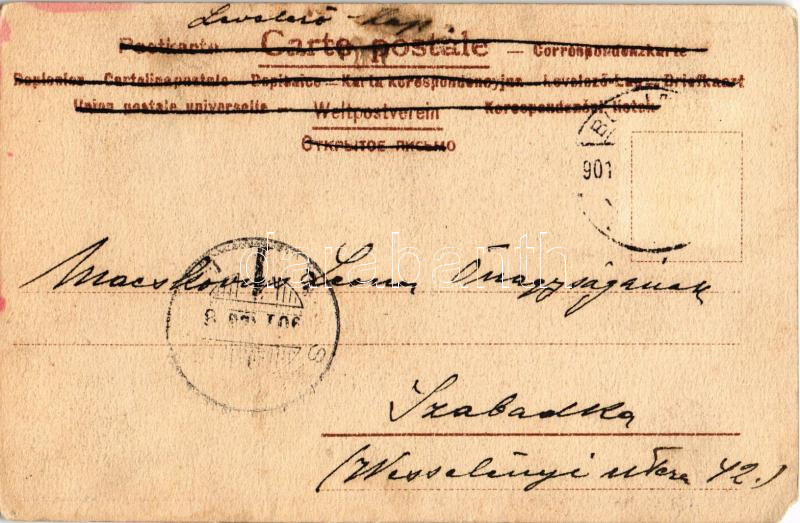 Levelező Lap
Postkarte — Carte postale — Correspondenzkarte
Dopisnice — Cartolina postale — Dopisnice — Karta korespondencyjna — Levelező-Lap — Briefkaart
Union postale universelle — Weltpostverein
Открытое письмо
BU
901
darabanth
Macskovics Leona Önagyságának
S
Szabadka
(Wesselényi utcza 42.)